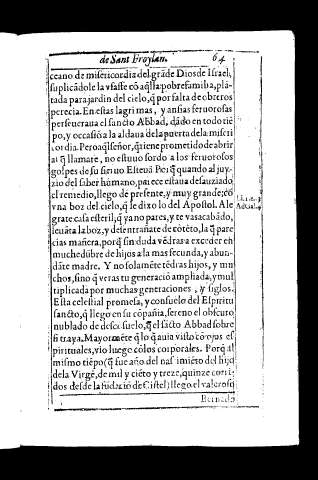 de Sant Froylan. 64
ceano de misericordia del grãde Dios de Israel,
suplicãdole la vsasse cõ aq̃lla pobre familia, plã-
tada para jardin del cielo, q̃ por falta de obreros
perecia. En estas lagrimas, y ansias feruorosas
perseueraua el sancto Abbad, dãdo en todo tiẽ-
po, y occasiõ a la aldaua de la puerta de la miseri
cordia. Pero aq̃l señor, q̃ tiene prometido de abrir
a q̃ llamare, no estuuo sordo a los feruorosos
golpes de su sieruo Esteuã Pero q̃ quando al juy-
zio del saber humano, parece estaua desauziado
el remedio, llego de presente, y muy grande; cõ
vna boz del cielo, q̃ le dixo lo del Apostol. Ale
grate casa esteril, q̃ ya no pares, y te vas acabãdo,
leuãta la boz, y desentrañate de cõtẽto, la q̃ pare
cias mañera, porq̃ sin duda vẽdras a exceder en
muchedũbre de hijos a la mas fecunda, y abun-
dãte madre. Y no solamẽte tẽdras hijos, y mu
chos, sino q̃ veras tu generació ampliada, y mul
tiplicada por muchas generaciones, y siglos.
Esta celestial promesa, y consuelo del Espiritu
sancto, q̃ llego en su cõpañia, sereno el obscuro
nublado de desconsuelo, q̃ el sãcto Abbad sobre
si traya. Mayormẽte q̃ lo q̃ auia visto cõ ojos es
pirituales, vio luego cõ los corporales. Porq̃ al
mismo tiẽpo (q̃ fue año del nascimiẽto del hijo
de la Virgẽ, de mil y ciẽto y treze, quinze corri-
dos desde la fũdaciõ de Cistel) llego el valeroso
Bernardo